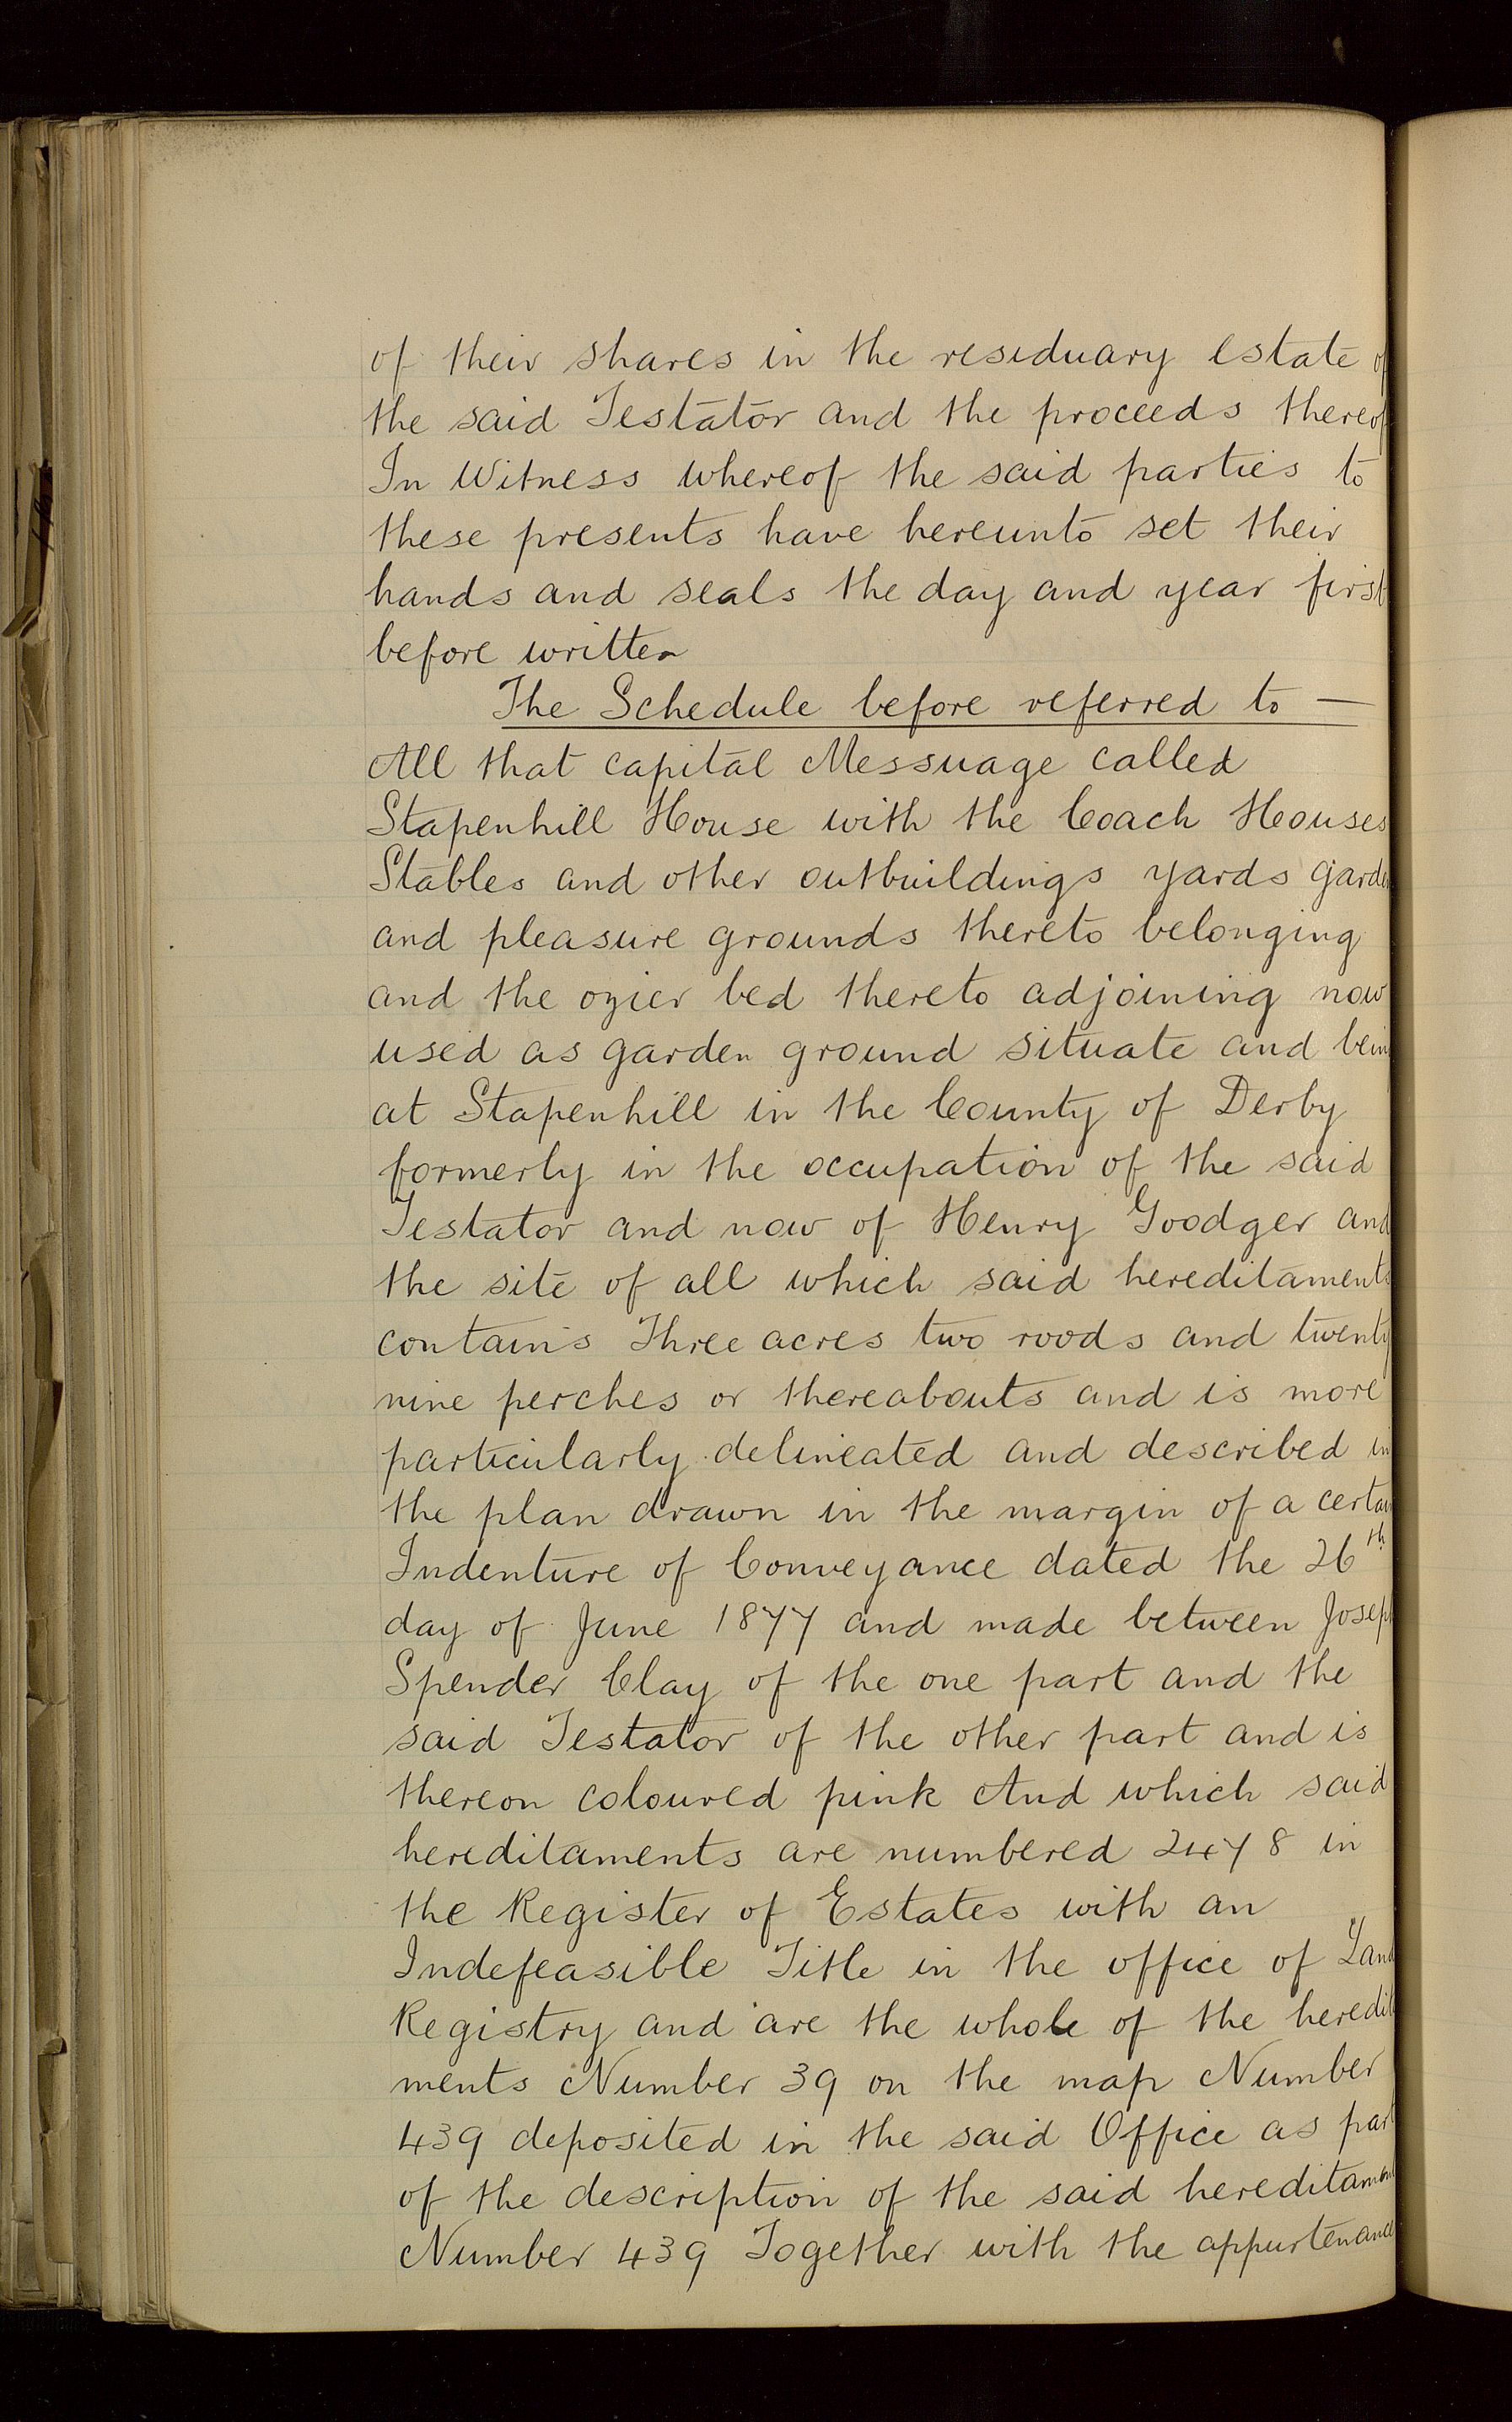 of their shares in the residuary estate of
the said Testator and the proceeds thereof
In Witness whereof the said parties to
these presents have hereunto set their
hands and seals the day and year first
before written
The Schedule before referred to —
All that capital Messuage called
Stapenhill House with the Coach Houses
Stables and other outbuildings yards garde
and pleasure grounds thereto belonging
and the ozier bed thereto adjoining now
used as garden ground situate and being
at Stapenhill in the County of Derby
formerly in the occupation of the said
Testator and now of Henry Goodger and
the site of all which said hereditaments
contains Three acres two roods and twenty
nine perches or thereabouts and is more
particularly delineated and described in
the plan drawn in the margin of a certai
Indenture of Conveyance dated the 26th
day of June 1877 and made between Josep
Spender Clay of the one part and the
said Testator of the other part and is
thereon coloured pink And which said
hereditaments are numbered 2478 in
the Register of Estates with an
Indefeasible Title in the office of Land
Registry and are the whole of the heredit
ments Number 39 on the map Number
439 deposited in the said Office as part
of the description of the said hereditamen
Number 439 Together with the appurtenance